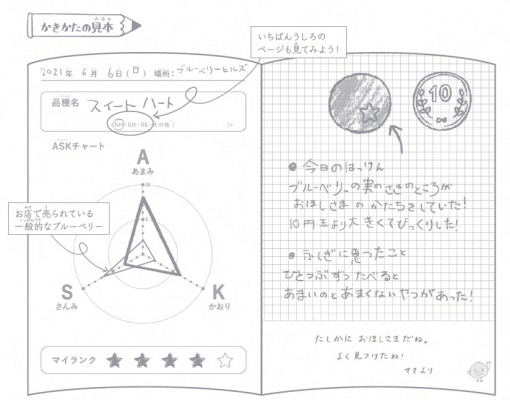 かきかたの見本
みほん
いちばんうしろの
ページも見てみよう！
2021年 6月 6日(日) 場所:ブルーベリーヒルズ
品種名 スイートハート
NH・SH・RE・その他（ ）
ASKチャート
A
あまみ
10
5
お店で売られている
一般的なブルーベリー
S
さんみ
K
かおり
マイランク ★★★★☆
10
●今日のはっけん
ブルーベリーの実のさきのところが
おほしさまのかたちをしていた！
10円玉より大きくてびっくりした！
●ふしぎに思ったこと
ひとつぶずつたべると
あまいのとあまくないやつがあった！
たしかにおほしさまだね。
よく見つけたね！
ママより